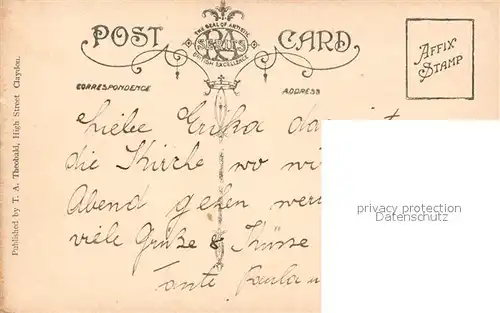 POST CARD
THE SEAL OF ARTISTIC
RA
SERIES
BRITISH EXCELLENCE
AFFIX
STAMP
CORRESPONDENCE
ADDRESS
Liebe Erika das ist
die Kirche wo wi
Abend gehen wer
viele Grüße & Küsse
Tante Paula u
Published by T. A. Theobald, High Street Claydon.
privacy protection
Datenschutz